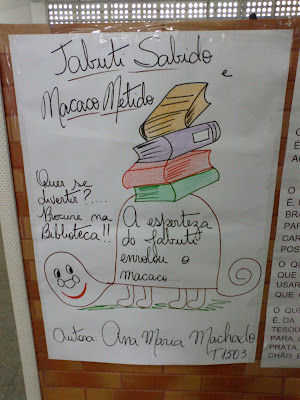 Jabuti Sabido
e
Macaco Metido
Quer se
divertir?....
Procure na
Biblioteca!!
A esperteza
do jabuti
enrolou o
macaco...
Autora: Ana Maria Machado
T1503
O QU
É,
BR
PAR
CAR
POS
O QU
QUE
USAR
QUE
O QUE
É, DA
TESOU
PARA
PRATA,
CHÃO